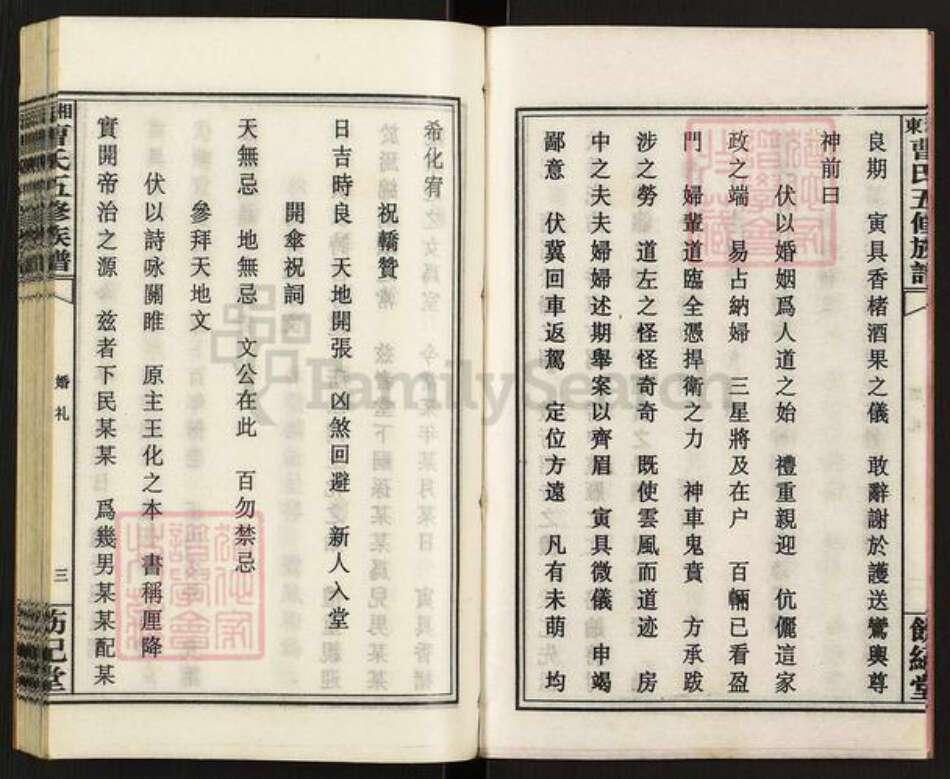 良期　寅具香楮酒果之儀　敢辭謝於護送鸞輿尊
神前曰
伏以婚姻爲人道之始　禮重親迎　伉儷這家
政之端　易占納婦　三星將及在户　百輛已看盈
門　婦輩道臨全憑捍衛之力　神車鬼賁　方承跋
涉之勞　道左之怪怪奇奇　既使雲風而道迹　房
中之夫夫婦婦述期舉案以齊眉　寅具微儀　申竭
鄙意　伏冀回車返駕　定位方遠　凡有未萌　均
希化宥
祝轎贊
日吉時良　天地開張　凶煞回避　新人入堂
開傘祝詞
天無忌　地無忌　文公在此　百勿禁忌
參拜天地文
伏以詩咏關雎　原主王化之本　書稱厘降
實開帝治之源　兹者下民某某　爲幾男某某配某
曹氏五修族譜
婚礼
三
FamilySearch